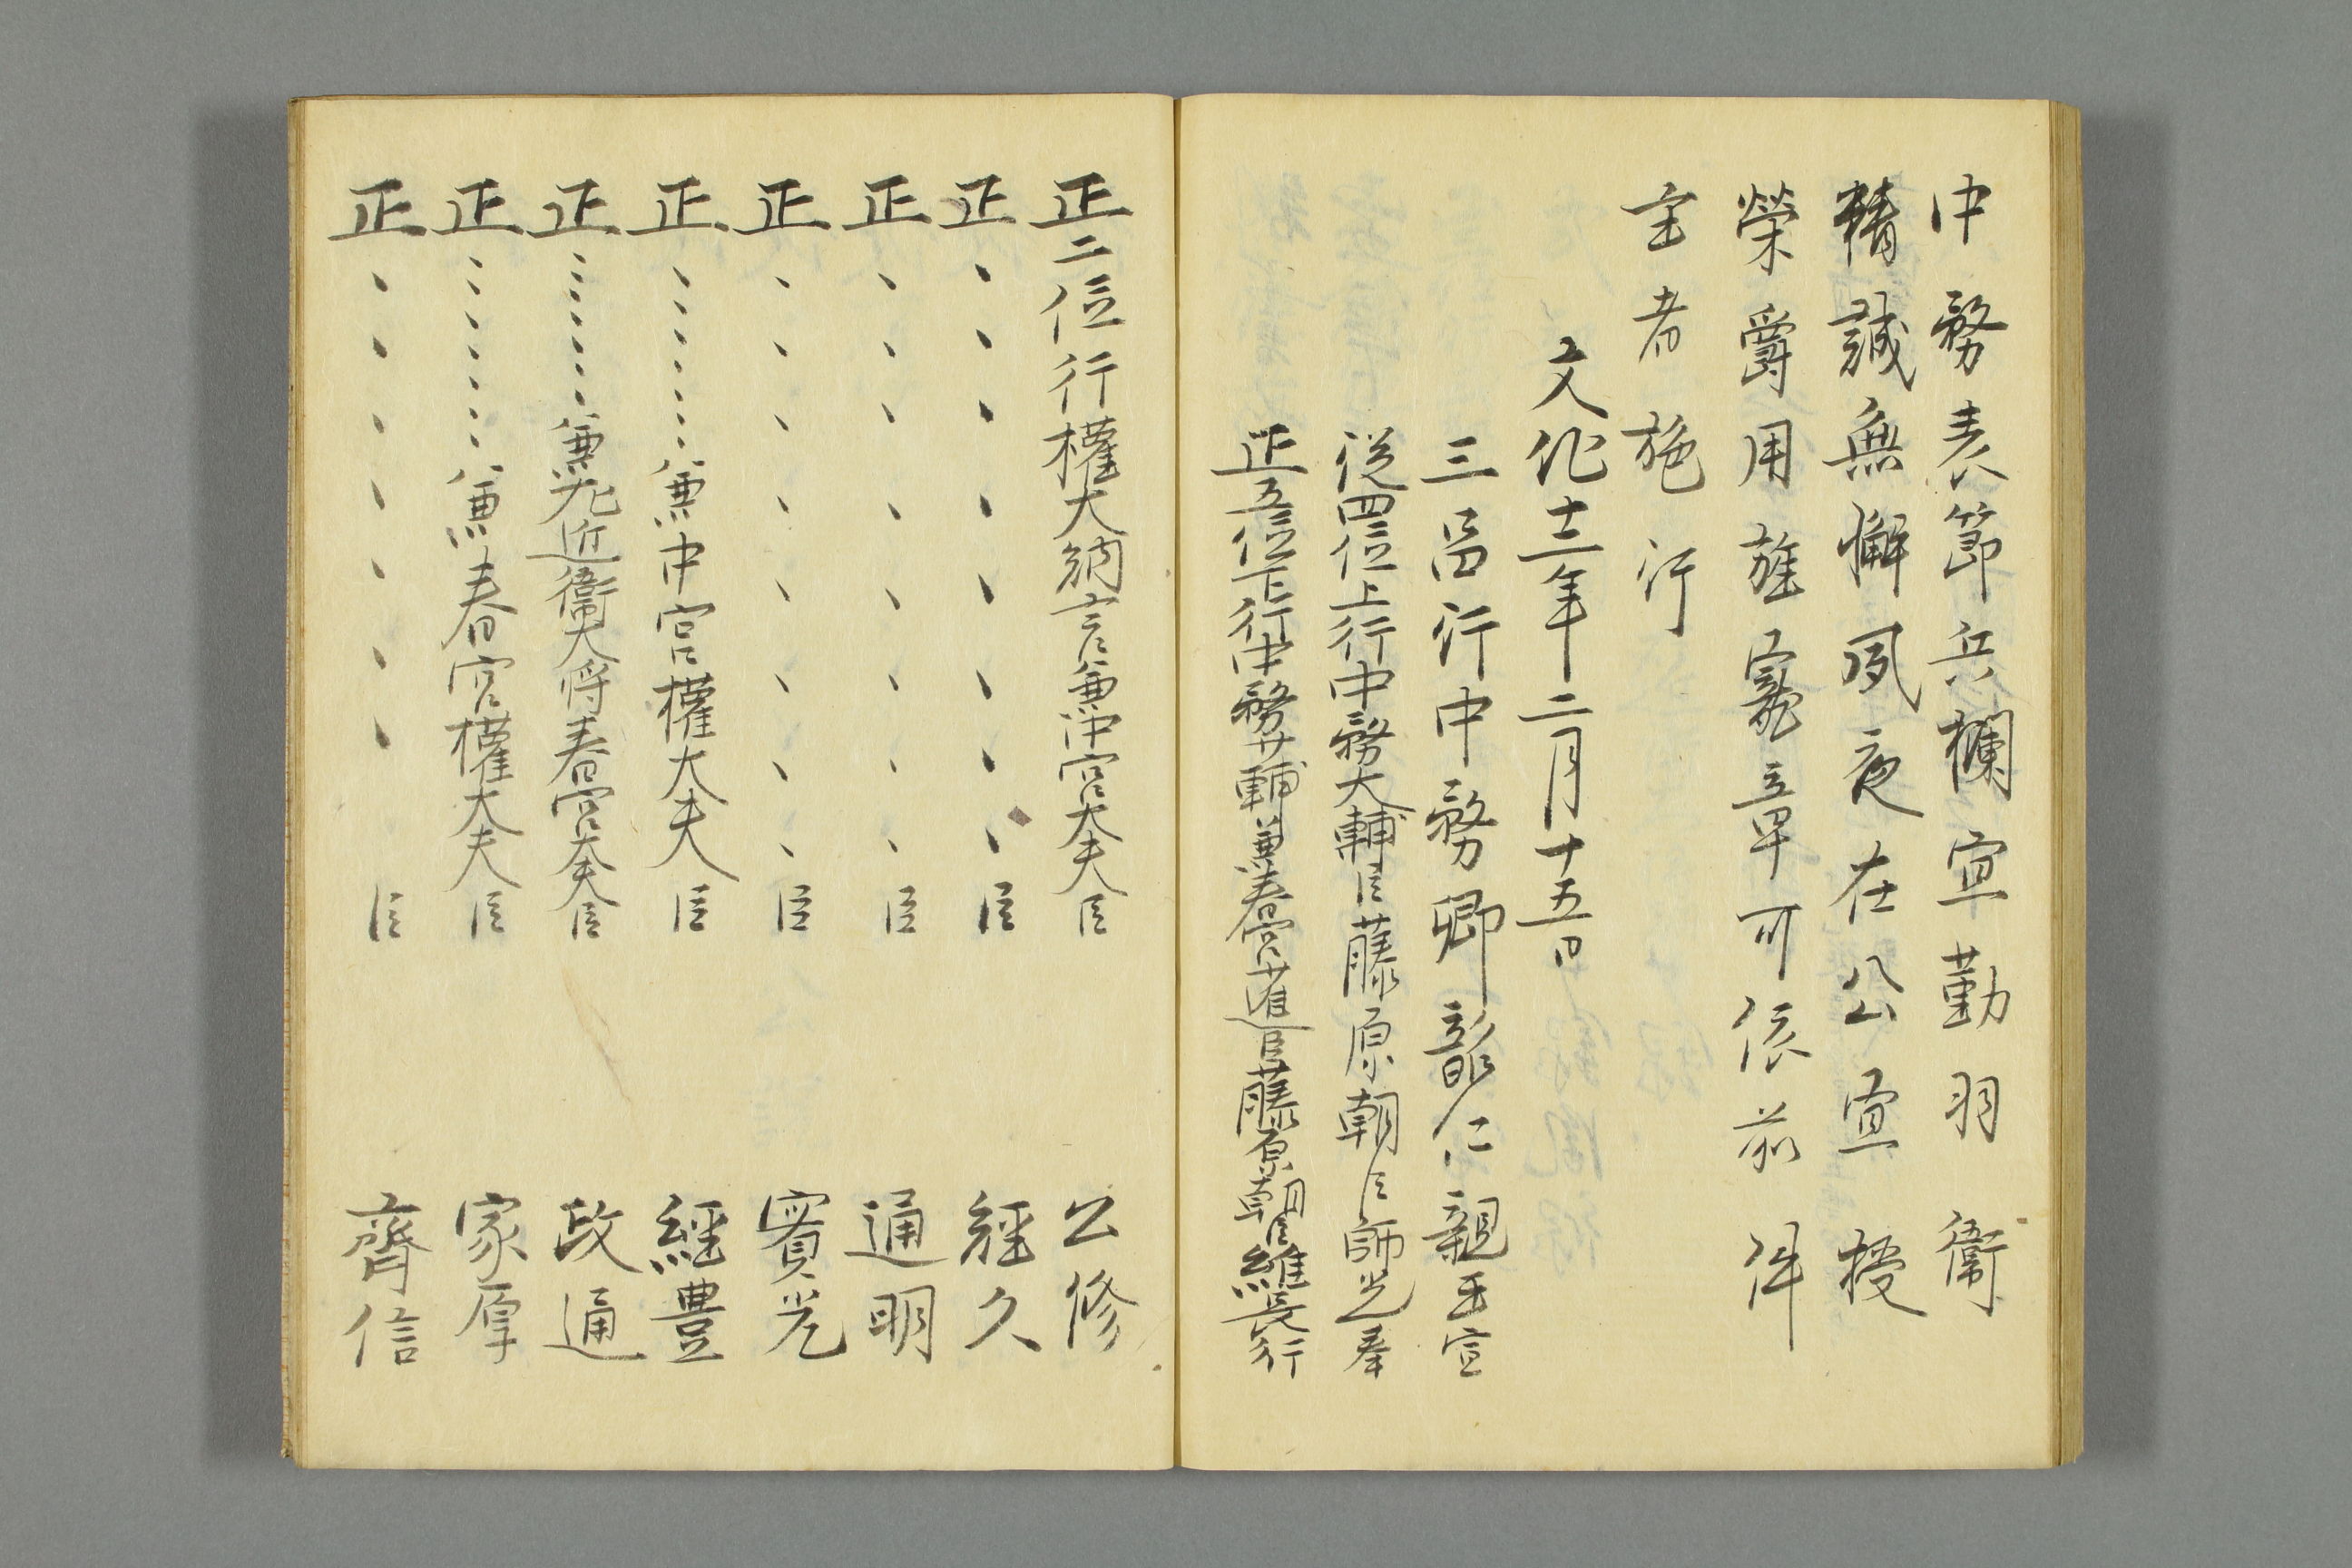 中務表節兵欄宣勤羽衛
精誠無懈夙夜在公宜授
榮爵用旌寵章可依前件
主者施行
文化十二年二月十五日
三品行中務卿韶仁親王宣
従四位上行中務大輔臣藤原朝臣師光奉
正五位下行中務少輔兼春宮少進臣藤原朝臣維長行
正二位行權大納言兼中宮大夫臣 公修
正、、、、、、、臣 經久
正、、、、、、、臣 通明
正、、、、、、、臣 實光
正、、、、、、、兼中宮權大夫臣 經豊
正、、、、、、兼左近衛大将春宮大夫臣 政通
正、、、、、、、兼春宮權大夫臣 家厚
正、、、、、、臣 齊信